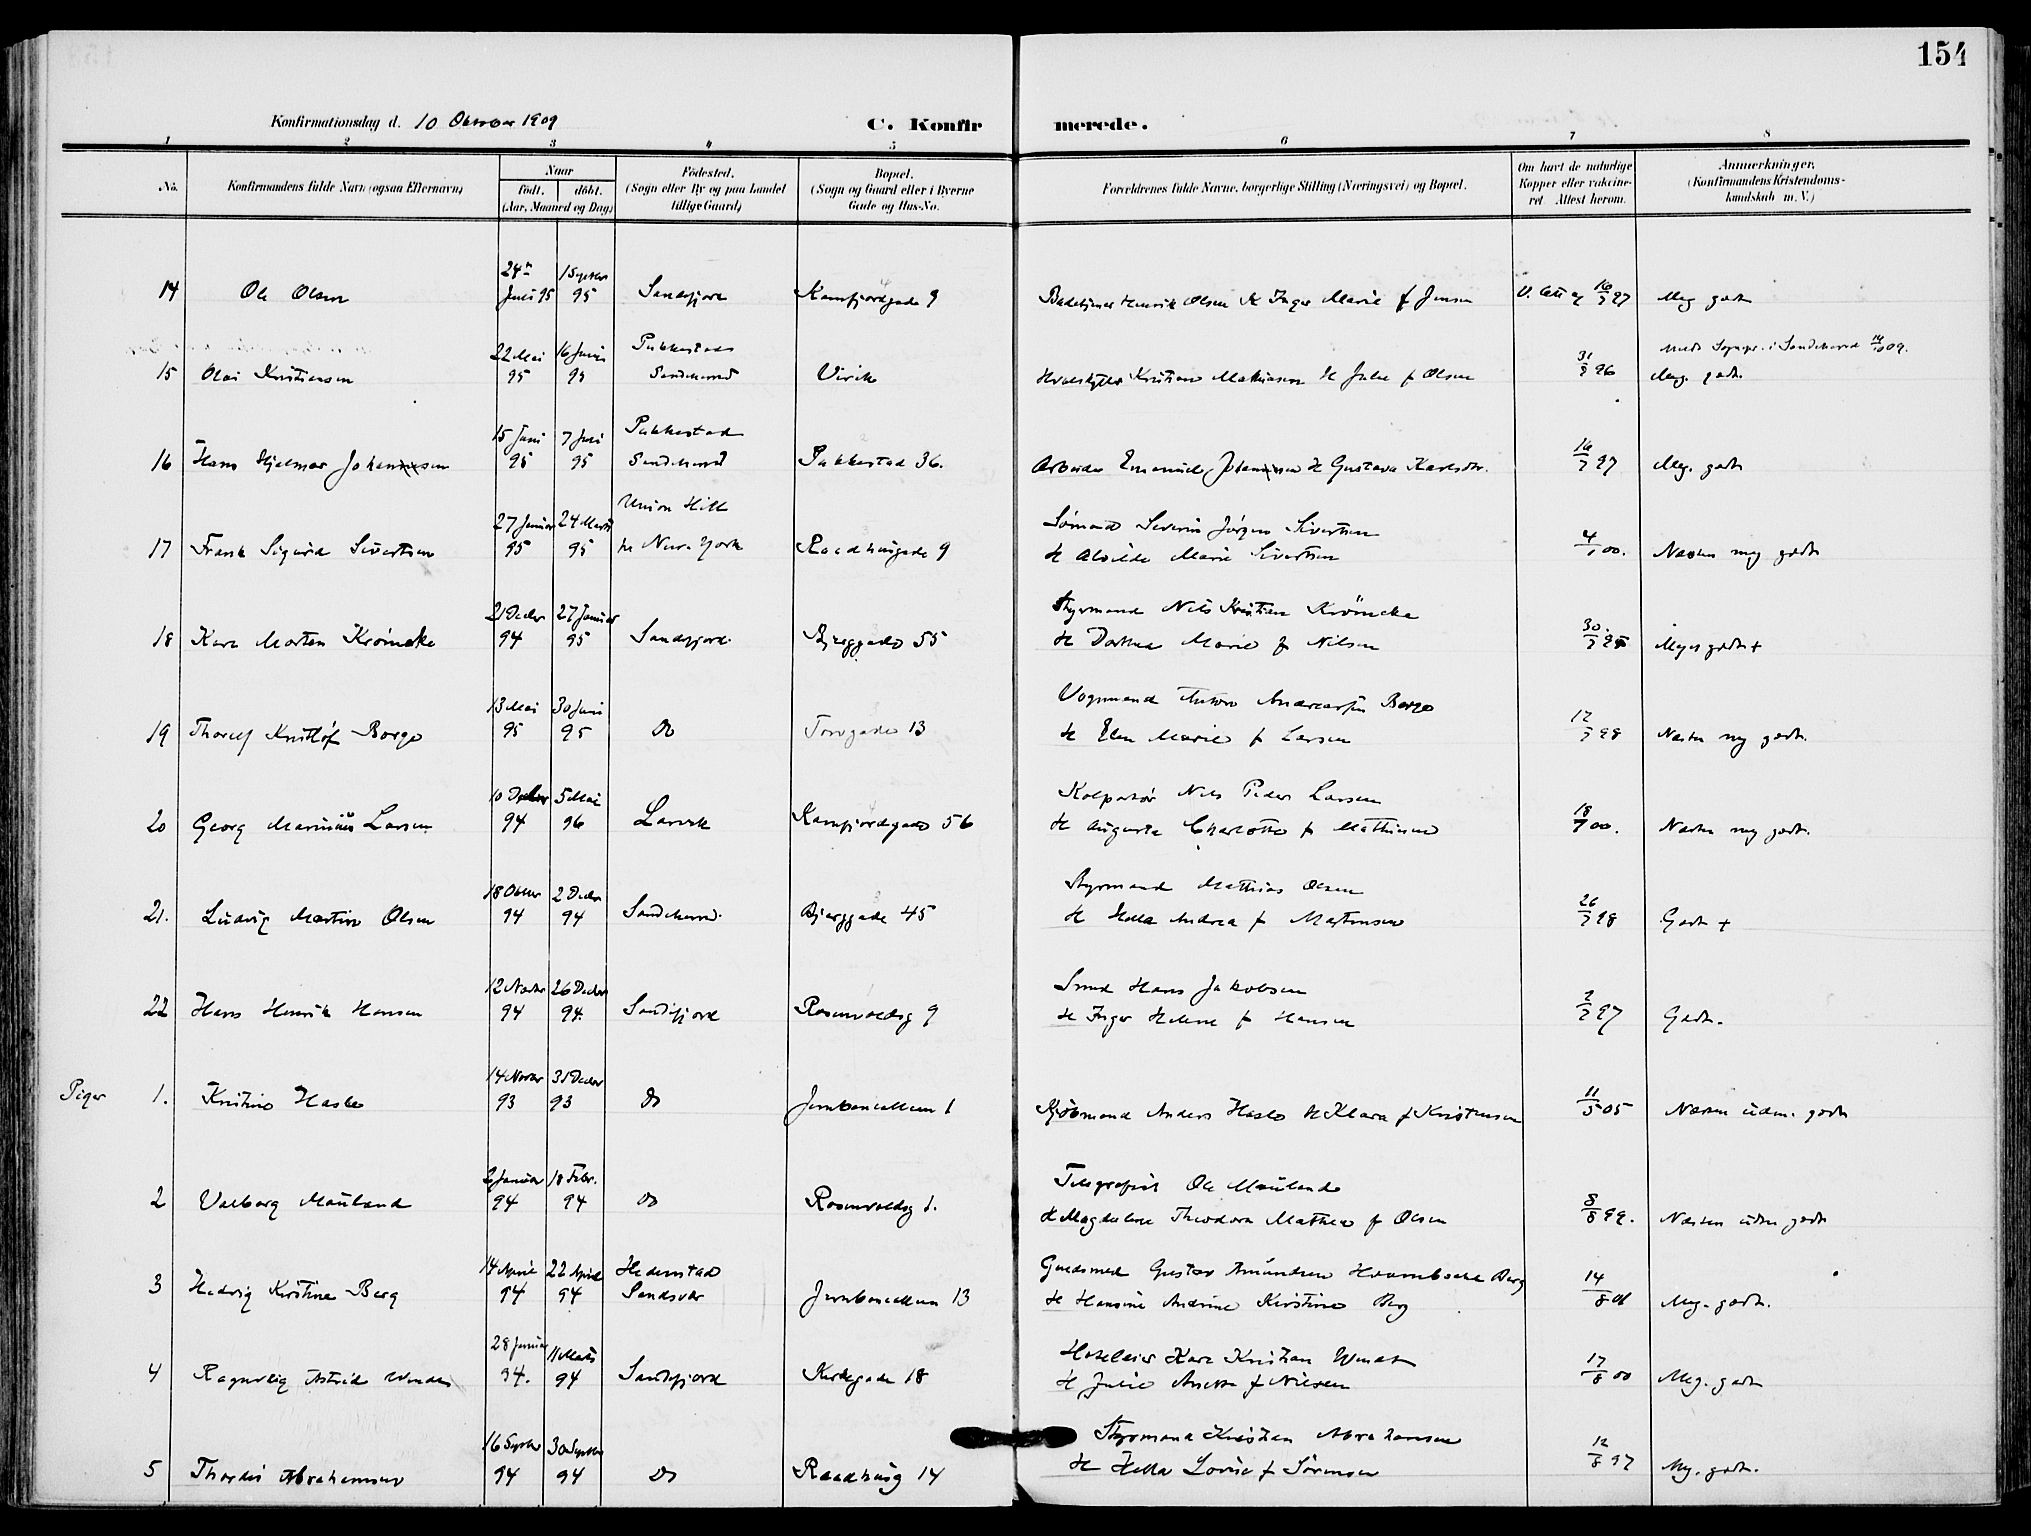 154
Konfirmationsdag d. 10 Oktober 1909
C. Konfir merede.
1 2 3 4 5 6 7 8
No.
Konfirmandens fulde Navn (ogsaa Efternavn)
Naar
födt. döbt.
(Aar, Maaned og Dag)
Födested.
(Sogn eller By og paa Landet
tillige Gaard)
Bopæl.
(Sogn og Gaard eller i Byerne
Gade og Hus-No.
Forældrenes fulde Navne, borgerlige Stilling (Næringsvei) og Bopæl.
Om havt de naturlige
Kopper eller vakcine-
ret Attest herom.
Anmærkninger,
(Konfirmandens Kristendoms-
kundskab m. V.)
14 Ole Olsen 24 Juli 95 1 Septbr 95 Sandefjord Kamfjordgade 9
Henrik Olsen H Inger Marie f Jensen 16/7 97 Meg godt
15 Olai Kristiansen 22 Mai 95 16 Juni 95 Pukkestad Sandeherred Virik
Hvalskytter Kristian Mathiasen H Julie f Olsen 31/8 96 Sandeherred 14/10 09. Meg. godt.
16 Hans Hjelmar Johannesen 15 Juni 95 7 Juli 95 Pukkestad Sandeherred Pukkestad 36.
Arbeider Emanuel Johannesen H Gustava Karlsdtr. 16/7 97 Meg. godt
17 Frank Sigurd Sivertsen 27 Januar 95 24 Marts 95 Union Hill New York Raadhusgade 9
Sömand Severin Jörgen Sivertsen
H Alvilde Marie Sivertsen 4/1 00. Næsten meg godt
18 Karl Morten Krömcke 21 Decbr 94 27 Januar 95 Sandefjord Bjerggade 55
Styrmand Nils Kristian Krömcke
H Dorthea Marie f Nilsen 30/7 95 Meget godt +
19 Thorulf Kristlof Borge 13 Mai 95 30 Juni 95 Do Torvgade 13
Vognmand Anton Andreassen Borge
H Elen Marie f Larsen 12/7 98 Næsten meg godt.
20 Georg Marinius Larsen 10 Decbr 94 5 Mai 96 Larvik Kamfjordgade 56
Kolportör Nils Peder Larsen
H Augusta Charlotte f Mathisen 18/7 00. Næsten meg godt.
21. Ludvig Martin Olsen 18 Oktbr 94 2 Decbr 94 Sandeherred. Bjerggade 45
Styrmand Mathias Olsen
H Hella Andrea f Martinsen 26/7 98 Godt +
22 Hans Henrik Hansen 12 Novbr 94 26 Decbr 94. Sandefjord Rosenvoldsg 9
Smed Hans Jakobsen
H Inger Helene f Hansen 2/7 97 Godt.
Piger 1. Kristine Hasle 14 Novbr 93 31 Decbr 93 Do Jernbanealleen 1
Kjöbmand Anders Hasle H Klara f Kristensen 11/5 05 Næsten udm. godt
2 Valborg Mauland 2 Januar 94 18 Febr. 94 Do Rosenvoldsg 1.
Telegrafist Ole Mauland
H Magdalene Theodora Mathea f Olsen 8/8 99. Næsten udm godt
3 Hedvig Kirstine Berg 14 April 94 22 April 94 Hedenstad Sandsvær Jernbanealleen 13
Guldsmed Gustav Amundsen Berg
H Hansine Andrine Kirstine Berg 14/8 06 Meg. godt.
4 Ragnveig Astrid 28 Januar 94. 11 Marts 94 Sandefjord Kirkegade 18
Hoteleier Karl Kristian
H Julie Anette f Nilsen 17/8 00 Meg. godt
5 Thordis Abrahamsen 16 Septbr 94 30 Septbr 94 Do Raadhusg 14
Styrmand Kristian Abrahamsen
H Hella Lovise f Sörensen 12/8 97 Meg. godt.